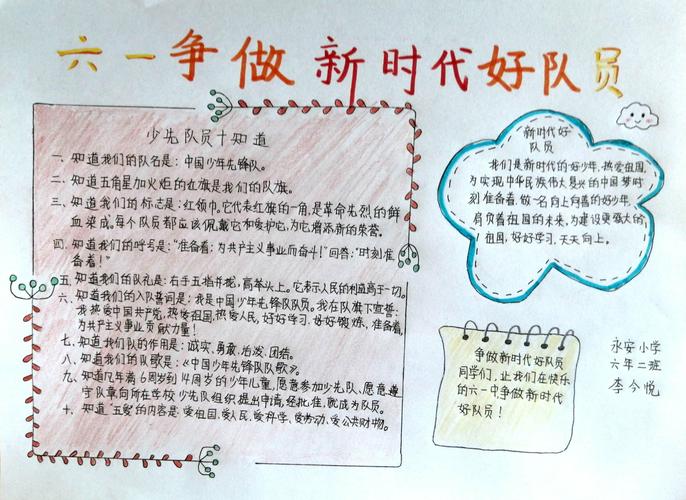 六一争做新时代好队员
少先队员十知道
一、知道我们的队名是：中国少年先锋队。
二、知道五角星加火炬的红旗是我们的队旗。
三、知道我们的标志是：红领巾。它代表红旗的一角，是革命先烈的鲜
血染成。每个队员都应该佩戴它和爱护它，为它增添新的荣誉。
四、知道我们的呼号是："准备着：为共产主义事业而奋斗！"回答："时刻准
备着！"
五、知道我们的队礼是：右手五指并拢，高举头上。它表示人民的利益高于一切。
六、知道我们的入队誓词是：我是中国少年先锋队队员。我在队旗下宣誓：
我热爱中国共产党，热爱祖国，热爱人民，好好学习，好好锻炼，准备着，
为共产主义事业贡献力量！
七、知道我们队的作用是：诚实、勇敢、活泼、团结。
八、知道我们的队歌是：《中国少年先锋队队歌》。
九、知道凡年满6周岁到14周岁的少年儿童，愿意参加少先队、愿意遵
守队章向所在学校少先队组织提出申请，经批准，就成为队员。
十、知道"五爱"的内容是：爱祖国、爱人民、爱科学、爱劳动、爱公共财物。
新时代好
队员
我们是新时代的好少年，热爱祖国，
为实现中华民族伟大复兴的中国梦时
刻准备着，做一名向上向善的好少年，
肩负着祖国的未来，为建设更强大的
祖国，好好学习，天天向上。
争做新时代好队员
同学们，让我们在快乐
的六一中争做新时代
好队员！
永安小学
六年二班
李今悦